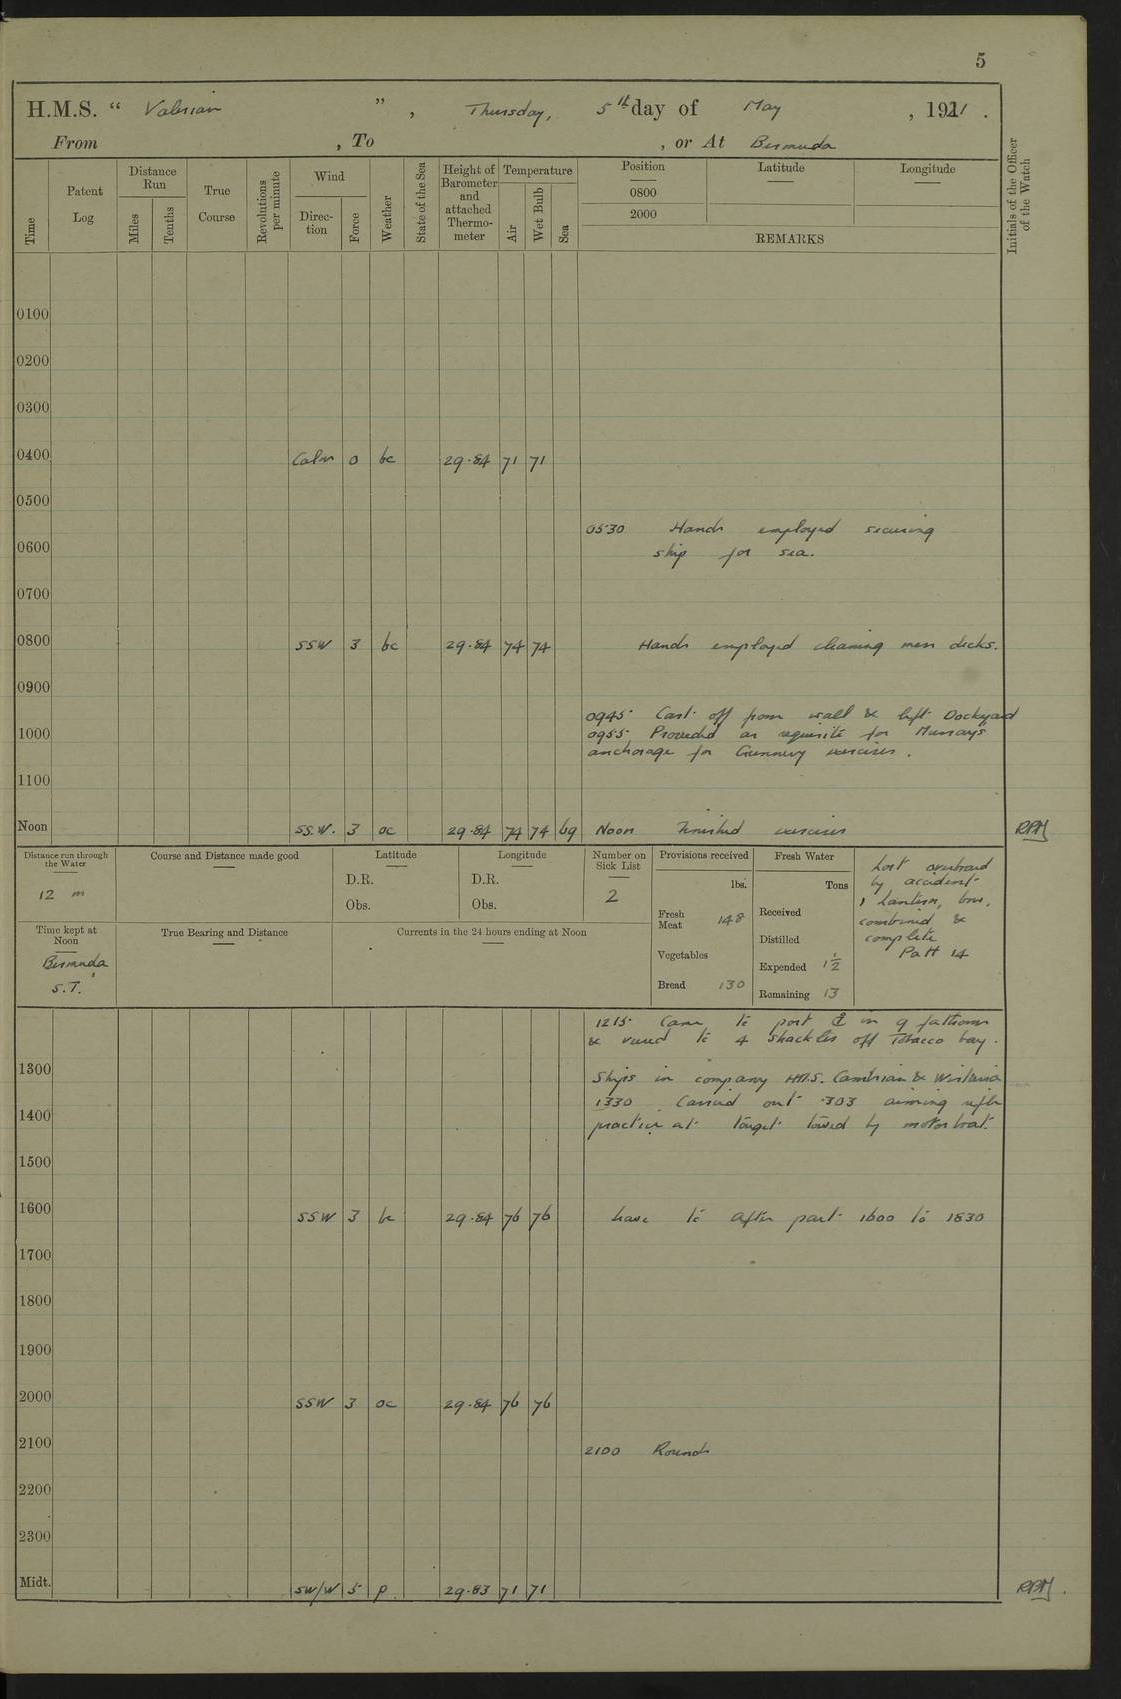 5
H.M.S. " Valerian " , Thursday, 5th day of May , 1921 .
From , To , or At Bermuda
Time
Patent Log
Distance Run
Miles
Tenths
True Course
Revolutions per minute
Wind
Direc-tion
Force
Weather
State of the Sea
Height of Barometer and attached Thermo-meter
Temperature
Air
Wet Bulb
Sea
Position
0800
2000
Latitude
Longitude
REMARKS
Initials of the Officer of the Watch
0100
0200
0300
0400 Calm 0 bc 29.84 71 71
0500
0530 Hands employed securing
ship for sea.
0600
0700
0800 SSW 3 bc 29.84 74 74 Hands employed cleaning mess decks.
0900
0945 Cast off from wall & left Dockyard
1000 0955 Proceeded as requisite for Murray's
anchorage for Gunnery exercises.
1100
Noon SS.W. 3 oc 29.84 74 74 69 Noon Finished exercises
Distance run through the Water
12 m
Course and Distance made good
Latitude
D.R.
Obs.
Longitude
D.R.
Obs.
Number on Sick List
2
Provisions received
lbs.
Fresh Meat 148
Vegetables
Bread 130
Fresh Water
Tons
Received
Distilled
Expended 1½
Remaining 13
Lost overboard
by accident
1 Lantern,
combined &
complete
Patt 14
Time kept at Noon
Bermuda
S.T.
True Bearing and Distance
Currents in the 24 hours ending at Noon
1215 Came to port ⚓ in 9 fathoms
& veered to 4 shackles off Tobacco bay.
1300 Ships in company HMS. Cambrian & Wistaria
1330 Carried out .303 aiming rifle
1400 practice at target towed by motor boat.
1500
1600 SSW 3 bc 29.84 76 76 Leave to after part 1600 to 1830
1700
1800
1900
2000 SSW 3 oc 29.84 76 76
2100 2100 Rounds
2200
2300
Midt. SW/W 5 p 29.83 71 71